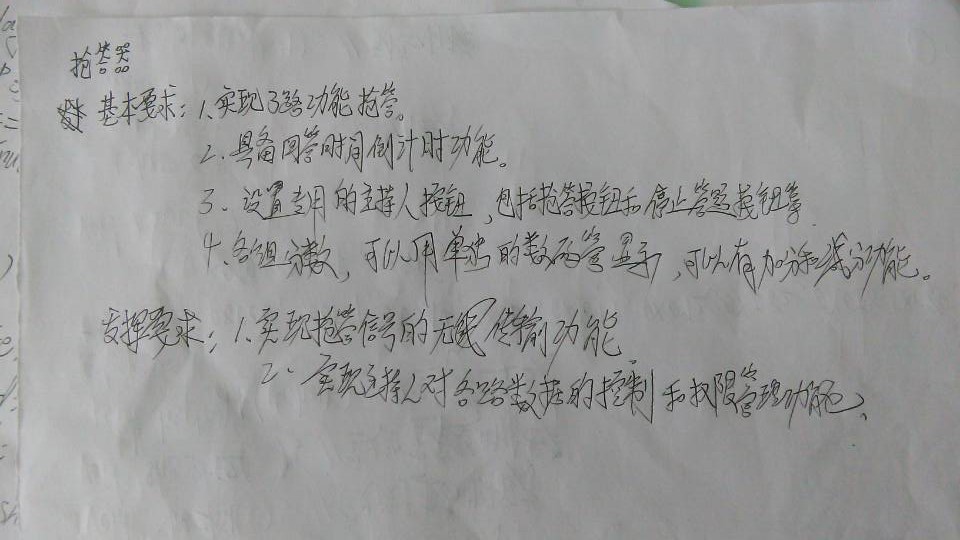 抢答器
基本要求：1、实现3路功能抢答。
2、具备回答时间倒计时功能。
3、设置专用的主持人按钮，包括抢答按钮和停止答题按钮等
4、各组分数，可以用单独的数码管显示，可以有加分和减分功能。
发挥要求：1、实现抢答信号的无线传输功能
2、实现主持人对各路数据的控制和权限管理功能。